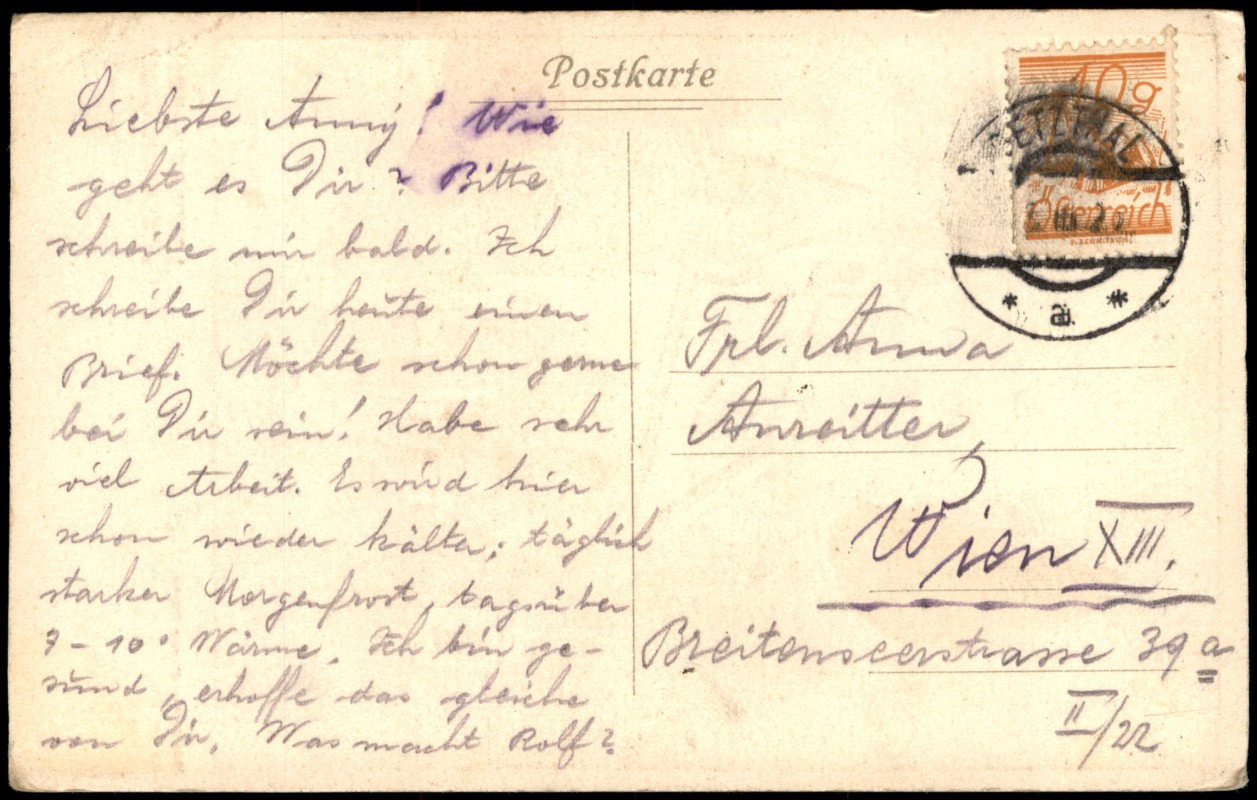 Postkarte
Liebste Anny! Wie
geht es Dir? Bitte
schreibe mir bald. Ich
schreibe Dir heute einen
Brief. Möchte schon gerne
bei Dir sein! Habe sehr
viel Arbeit. Es wird hier
schon wieder kälter; täglich
starker Morgenfrost, tagsüber
7-10° Wärme. Ich bin ge-
sund, erhoffe das gleiche
von Dir. Was macht Rolf?
10g
Österreich
* a *
Frl. Anna
Anreitter,
Wien XIII.
Breitenseerstrasse 39a
II/22